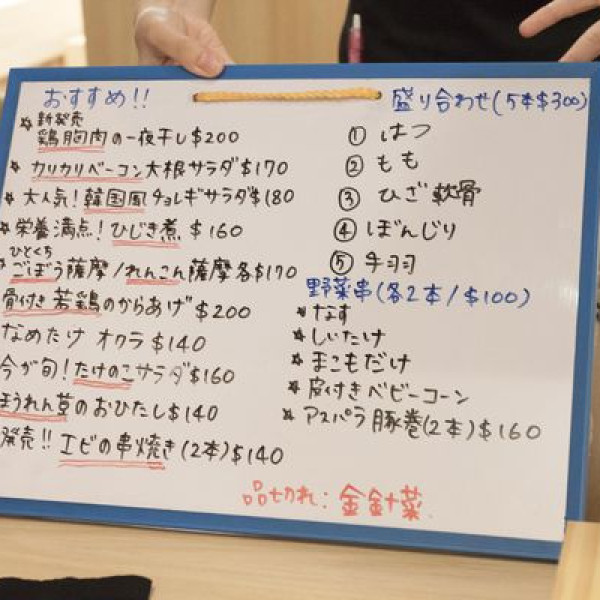 おすすめ!!
新発売
* 鶏胸肉の一夜干し $200
* カリカリベーコン大根サラダ $170
* 大人気!韓国風チョレギサラダ $180
* 栄養満点!ひじき煮 $160
ひとくち
* ごぼう薩摩/れんこん薩摩 各$170
骨付き若鶏のからあげ $200
なめたけ オクラ $140
今が旬!たけのこサラダ $160
ほうれん草のおひたし $140
発売!! エビの串焼き(2本) $140
盛り合わせ(5本$300)
① はつ
② もも
③ ひざ軟骨
④ ぼんじり
⑤ 手羽
野菜串(各2本/$100)
* なす
* しいたけ
* まこもだけ
* 皮付きベビーコーン
* アスパラ豚巻(2本) $160
品切れ:金針菜